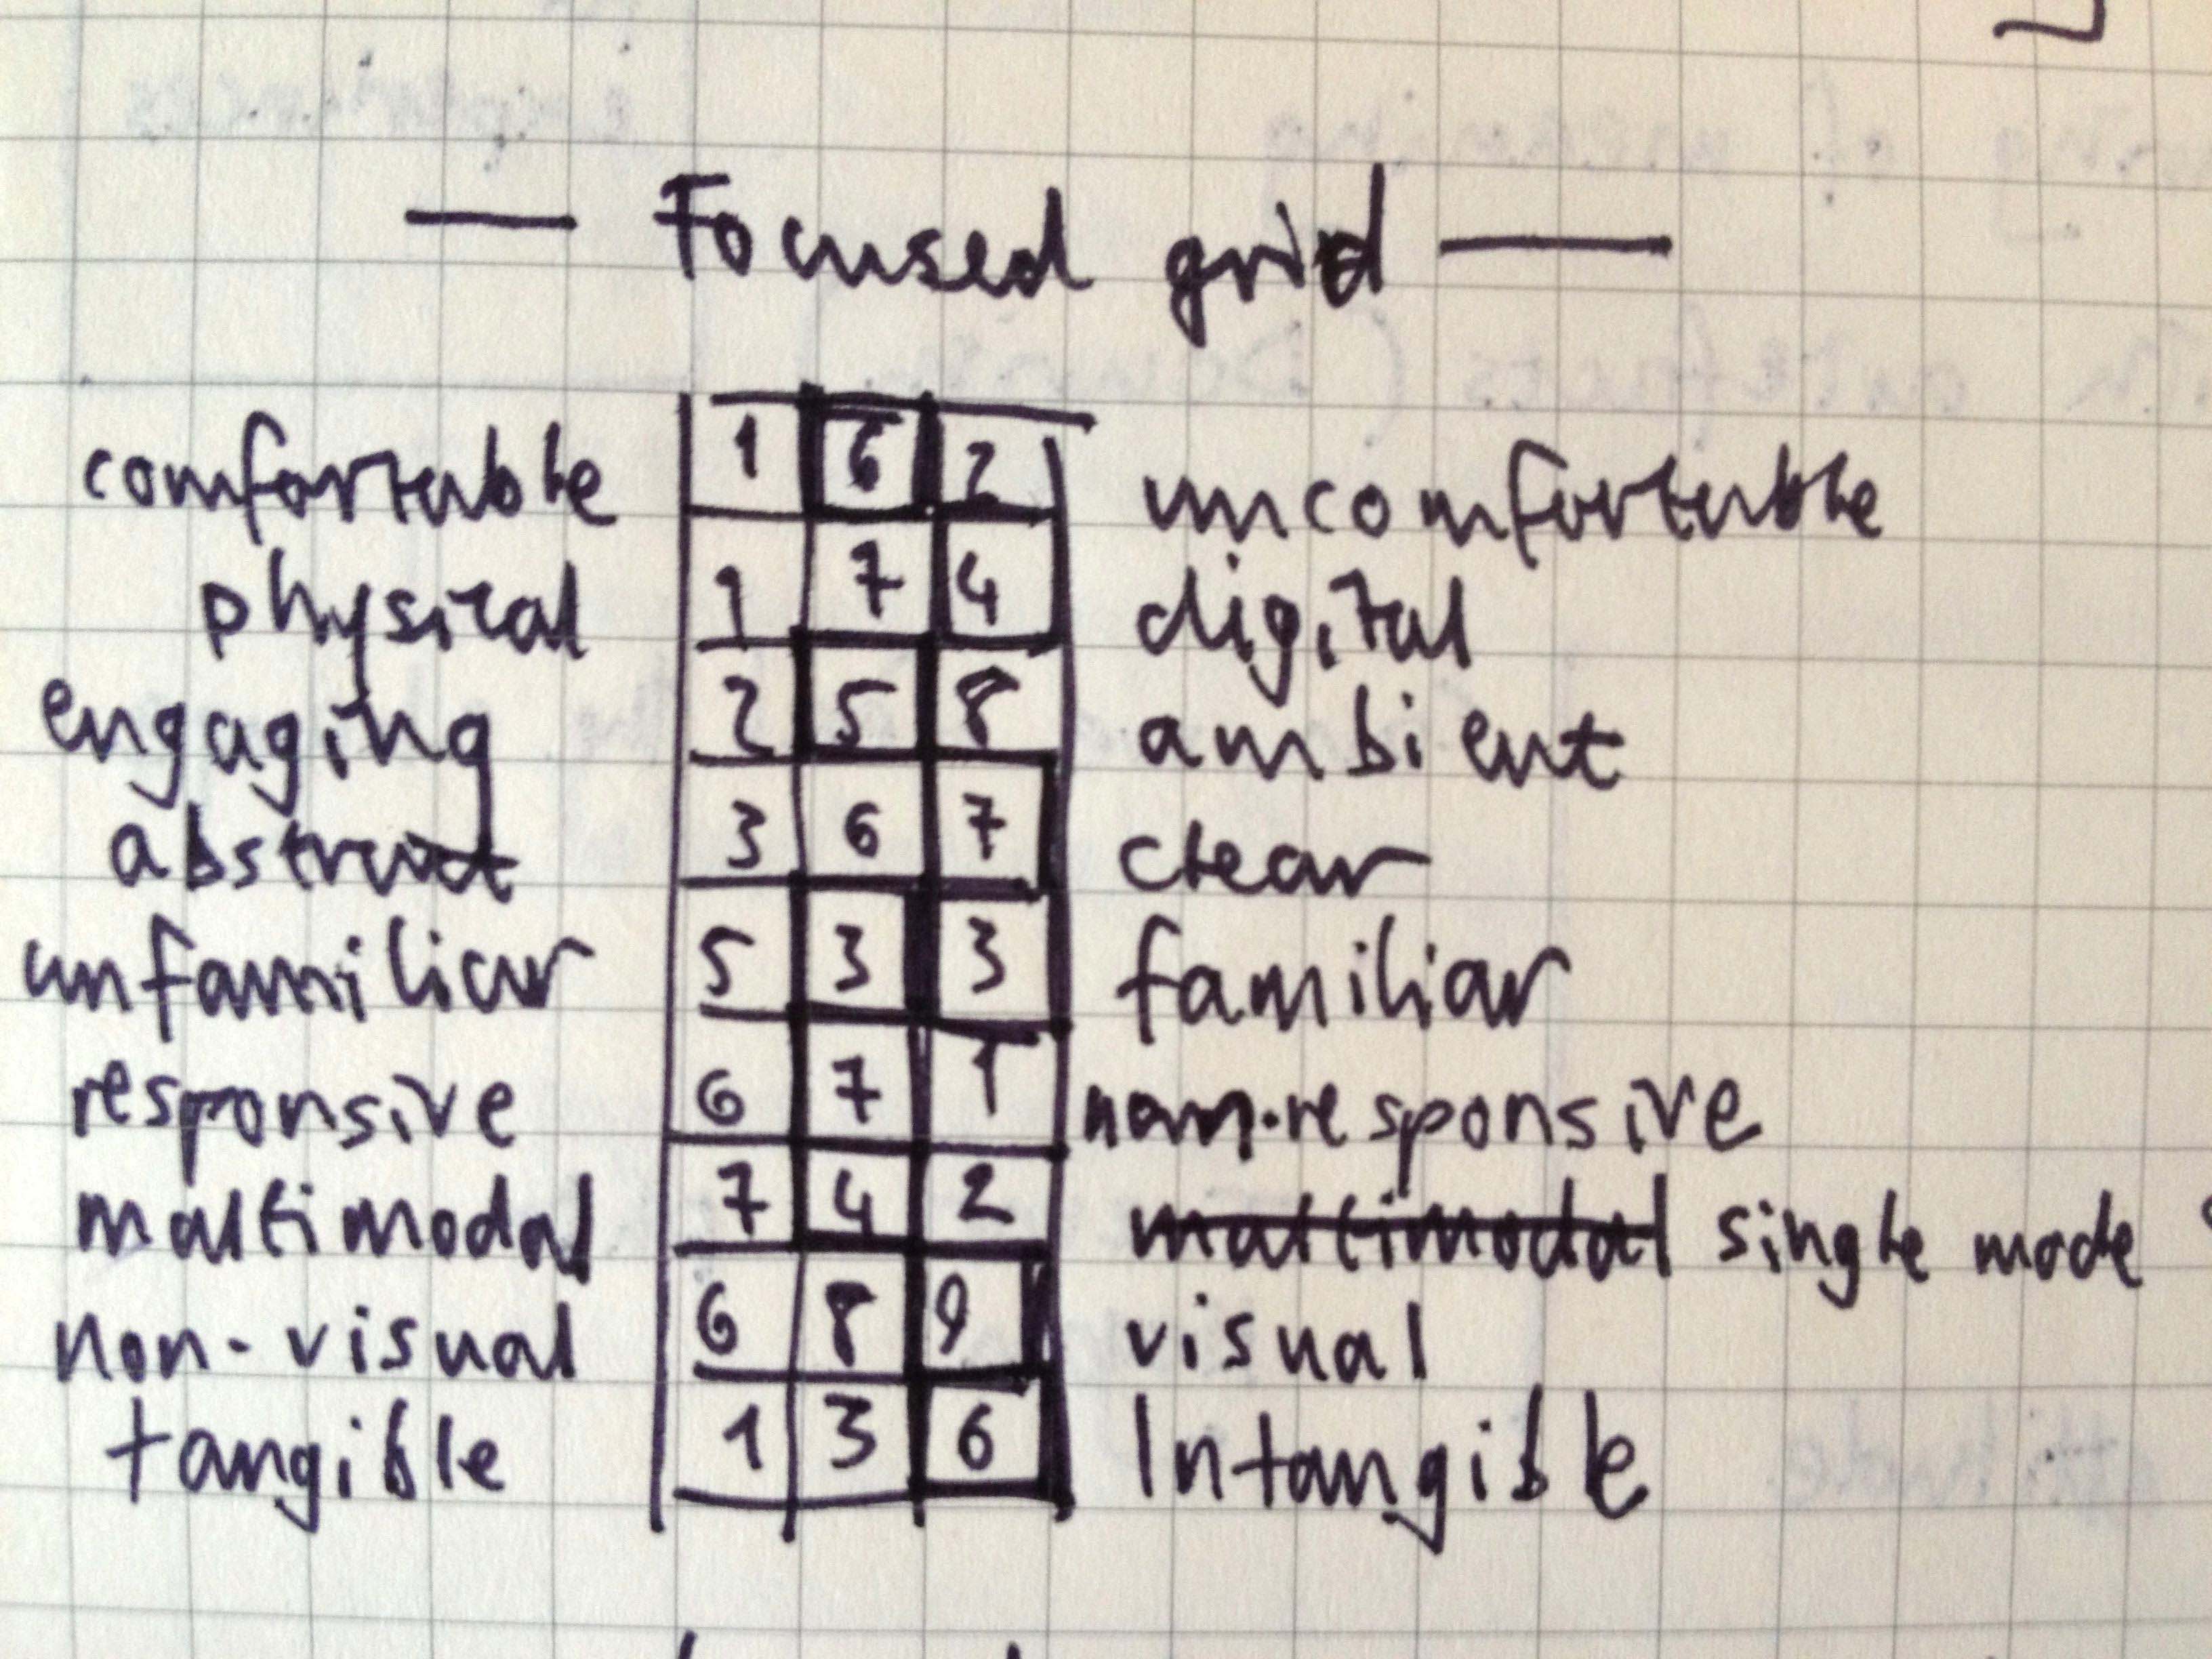 — Focused grid —
comfortable 1 6 2 uncomfortable
physical 1 7 4 digital
engaging 2 5 8 ambient
abstract 3 6 7 clear
unfamiliar 5 3 3 familiar
responsive 6 7 1 non-responsive
multimodal 7 4 2 multimodal single mode
non-visual 6 8 9 visual
tangible 1 3 6 Intangible